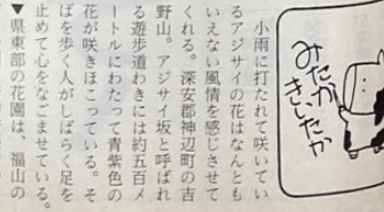 みたか
きいたか
小雨に打たれて咲いてい
るアジサイの花はなんとも
いえない風情を感じさせて
くれる。深安郡神辺町の吉
野山。アジサイ坂と呼ばれ
る遊歩道わきには約五百メ
ートルにわたって青紫色の
花が咲きほこっている。そ
ばを歩く人がしばらく足を
止めて心をなごませている。
▼県東部の花園は、福山の